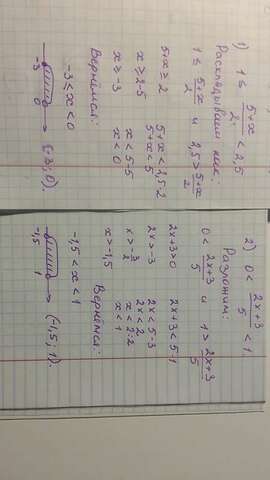 1) 1 ≤ (5+x)/2 < 2,5
Раскладываем как:
1 ≤ (5+x)/2 и 2,5 > (5+x)/2
5+x ≥ 2    5+x < 2,5·2
x ≥ 2-5    5+x < 5
x ≥ -3    x < 5-5
x < 0
Вернёмся:
-3 ≤ x < 0
-3 0 [-3; 0).
2) 0 < (2x+3)/5 < 1
Разложим:
0 < (2x+3)/5 и 1 > (2x+3)/5
2x+3 > 0    2x+3 < 5·1
2x > -3    2x < 5-3
x > -3/2    2x < 2
x > -1,5    x < 2:2
x < 1
Вернёмся:
-1,5 < x < 1
-1,5 1 (-1,5; 1)